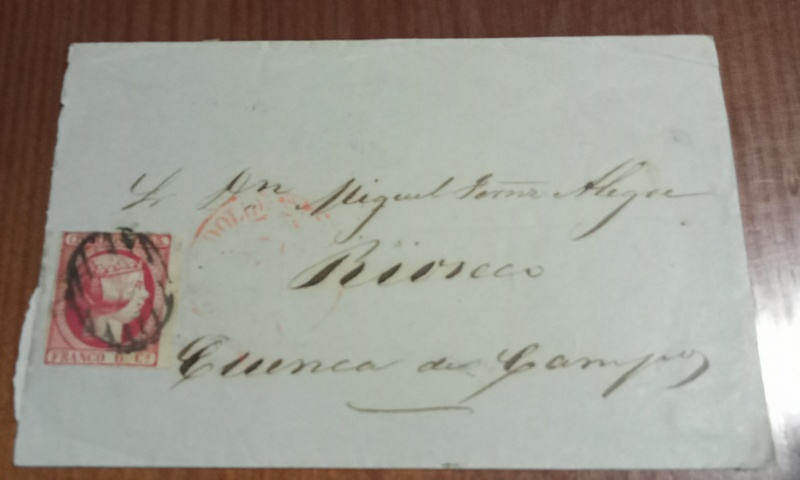 Sr Dn Miguel Fernz Alegre
Rioseco
Cuenca de Campos
FRANCO 6 Cs